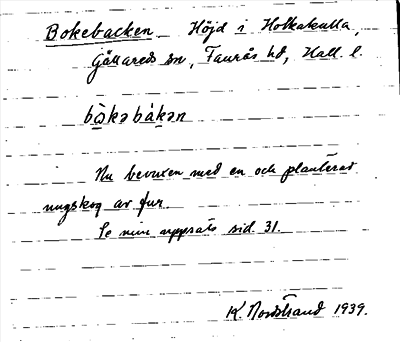 Bokebacken Höjd i Holkakulla,
Gällareds sn, Faurås hd, Hall. l.
bò̱kəbáḵən
Nu bevuxen med en och planterad
ungskog av fur.
Se min uppsats sid. 31.
K. Nordstrand 1939.